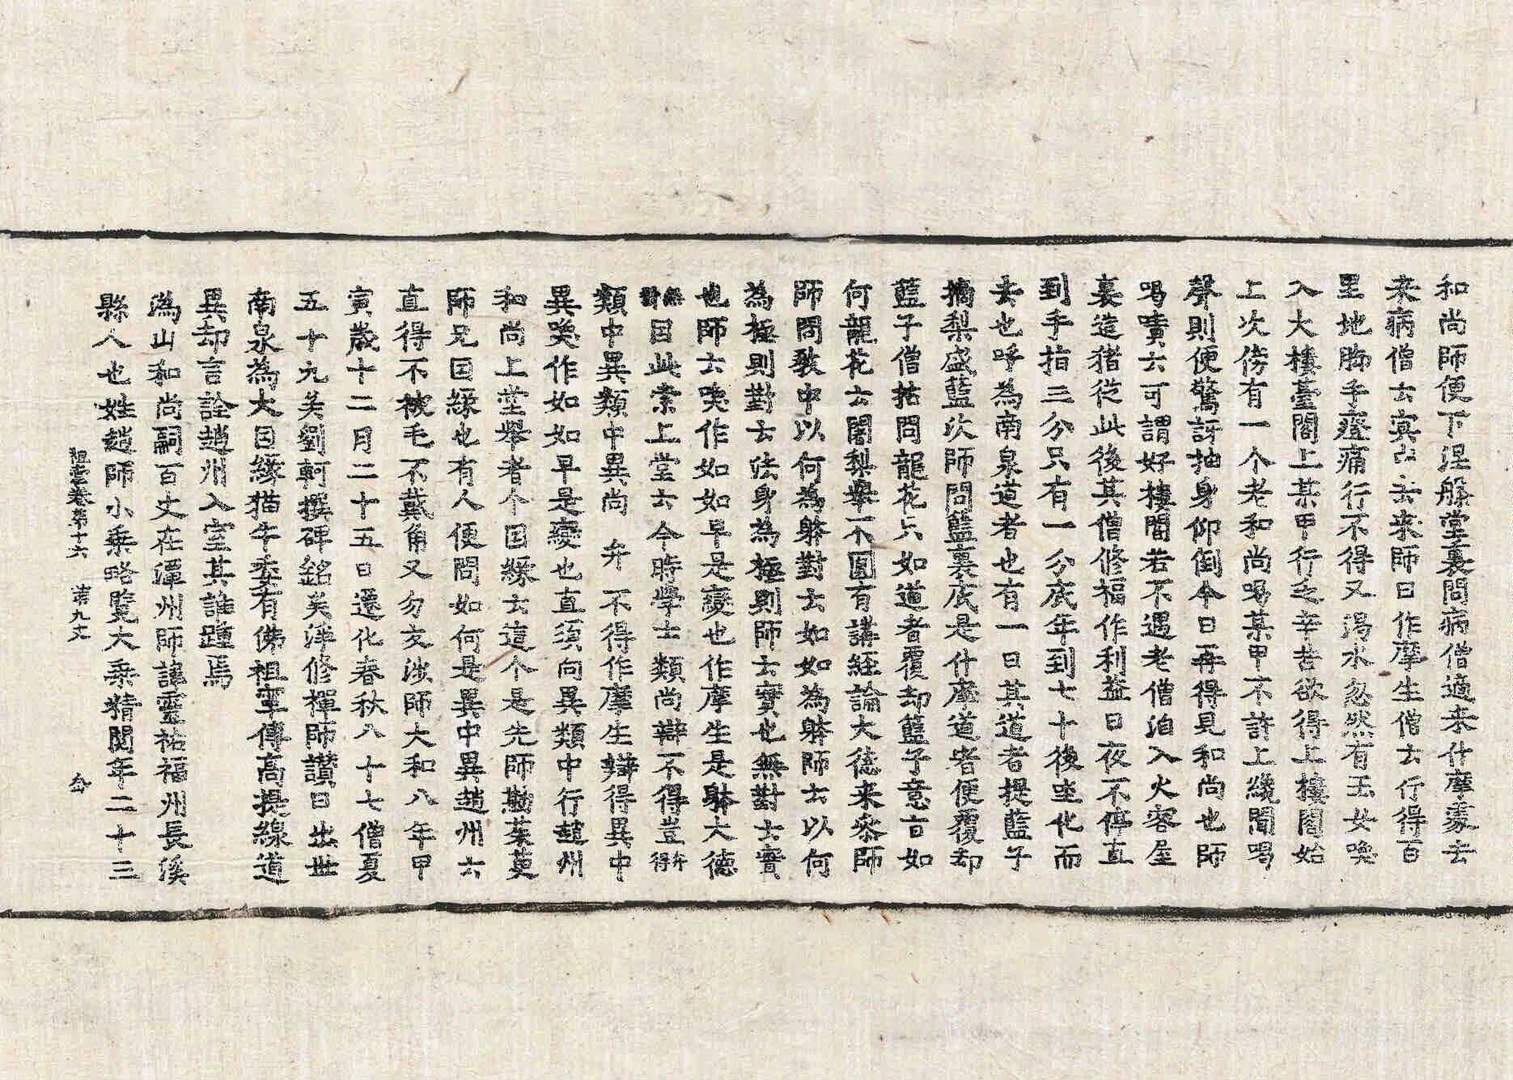 和尚師便下涅槃堂裏問病僧適来什摩處去
来病僧云冥冥去来師曰作摩生僧云行得百
里地脚手疼痛行不得又渴水忽然有玉女喚
入大樓臺閣上某甲行乏辛苦欲得上樓閣始
上次傍有一个老和尚喝某甲不許上纔聞喝
聲則便驚訝抽身仰倒今日再得見和尚也師
喝嘖云可謂好樓閣若不遇老僧洎入火客屋
裏造猪從此後其僧修福作利益日夜不停直
到手指三分只有一分底年到七十後坐化而
去也呼為南泉道者也有一日其道者提藍子
摘梨盛藍次師問藍裏底是什摩道者便覆却
藍子僧拈問龍花只如道者覆却籃子意旨如
何龍花云闍梨舉不圓有講經論大德来叅師
師問教中以何為躰對云如如為躰師云以何
為極則對云法身為極則師云實也無對云實
也師云喚作如如早是變也作摩生是躰大德
無對因此索上堂云今時學士類尚辯不得豈弁得
類中異類中異尚弁不得作摩生辯得異中
異喚作如如早是變也直須向異類中行趙州
和尚上堂舉者个因緣云這个是先師勘茱萸
師兄因緣也有人便問如何是異中異趙州云
直得不被毛不戴角又勿交涉師大和八年甲
寅歲十二月二十五日遷化春秋八十七僧夏
五十九矣劉軻撰碑銘矣淨修禪師讚曰出世
南泉為大因緣猫牛委有佛祖寧傳高提線道
異却言詮趙州入室其誰踵焉
溈山和尚嗣百丈在潭州師諱靈祐福州長溪
縣人也姓趙師小乘略覽大乘精閱年二十三
祖堂卷第十六 第九丈